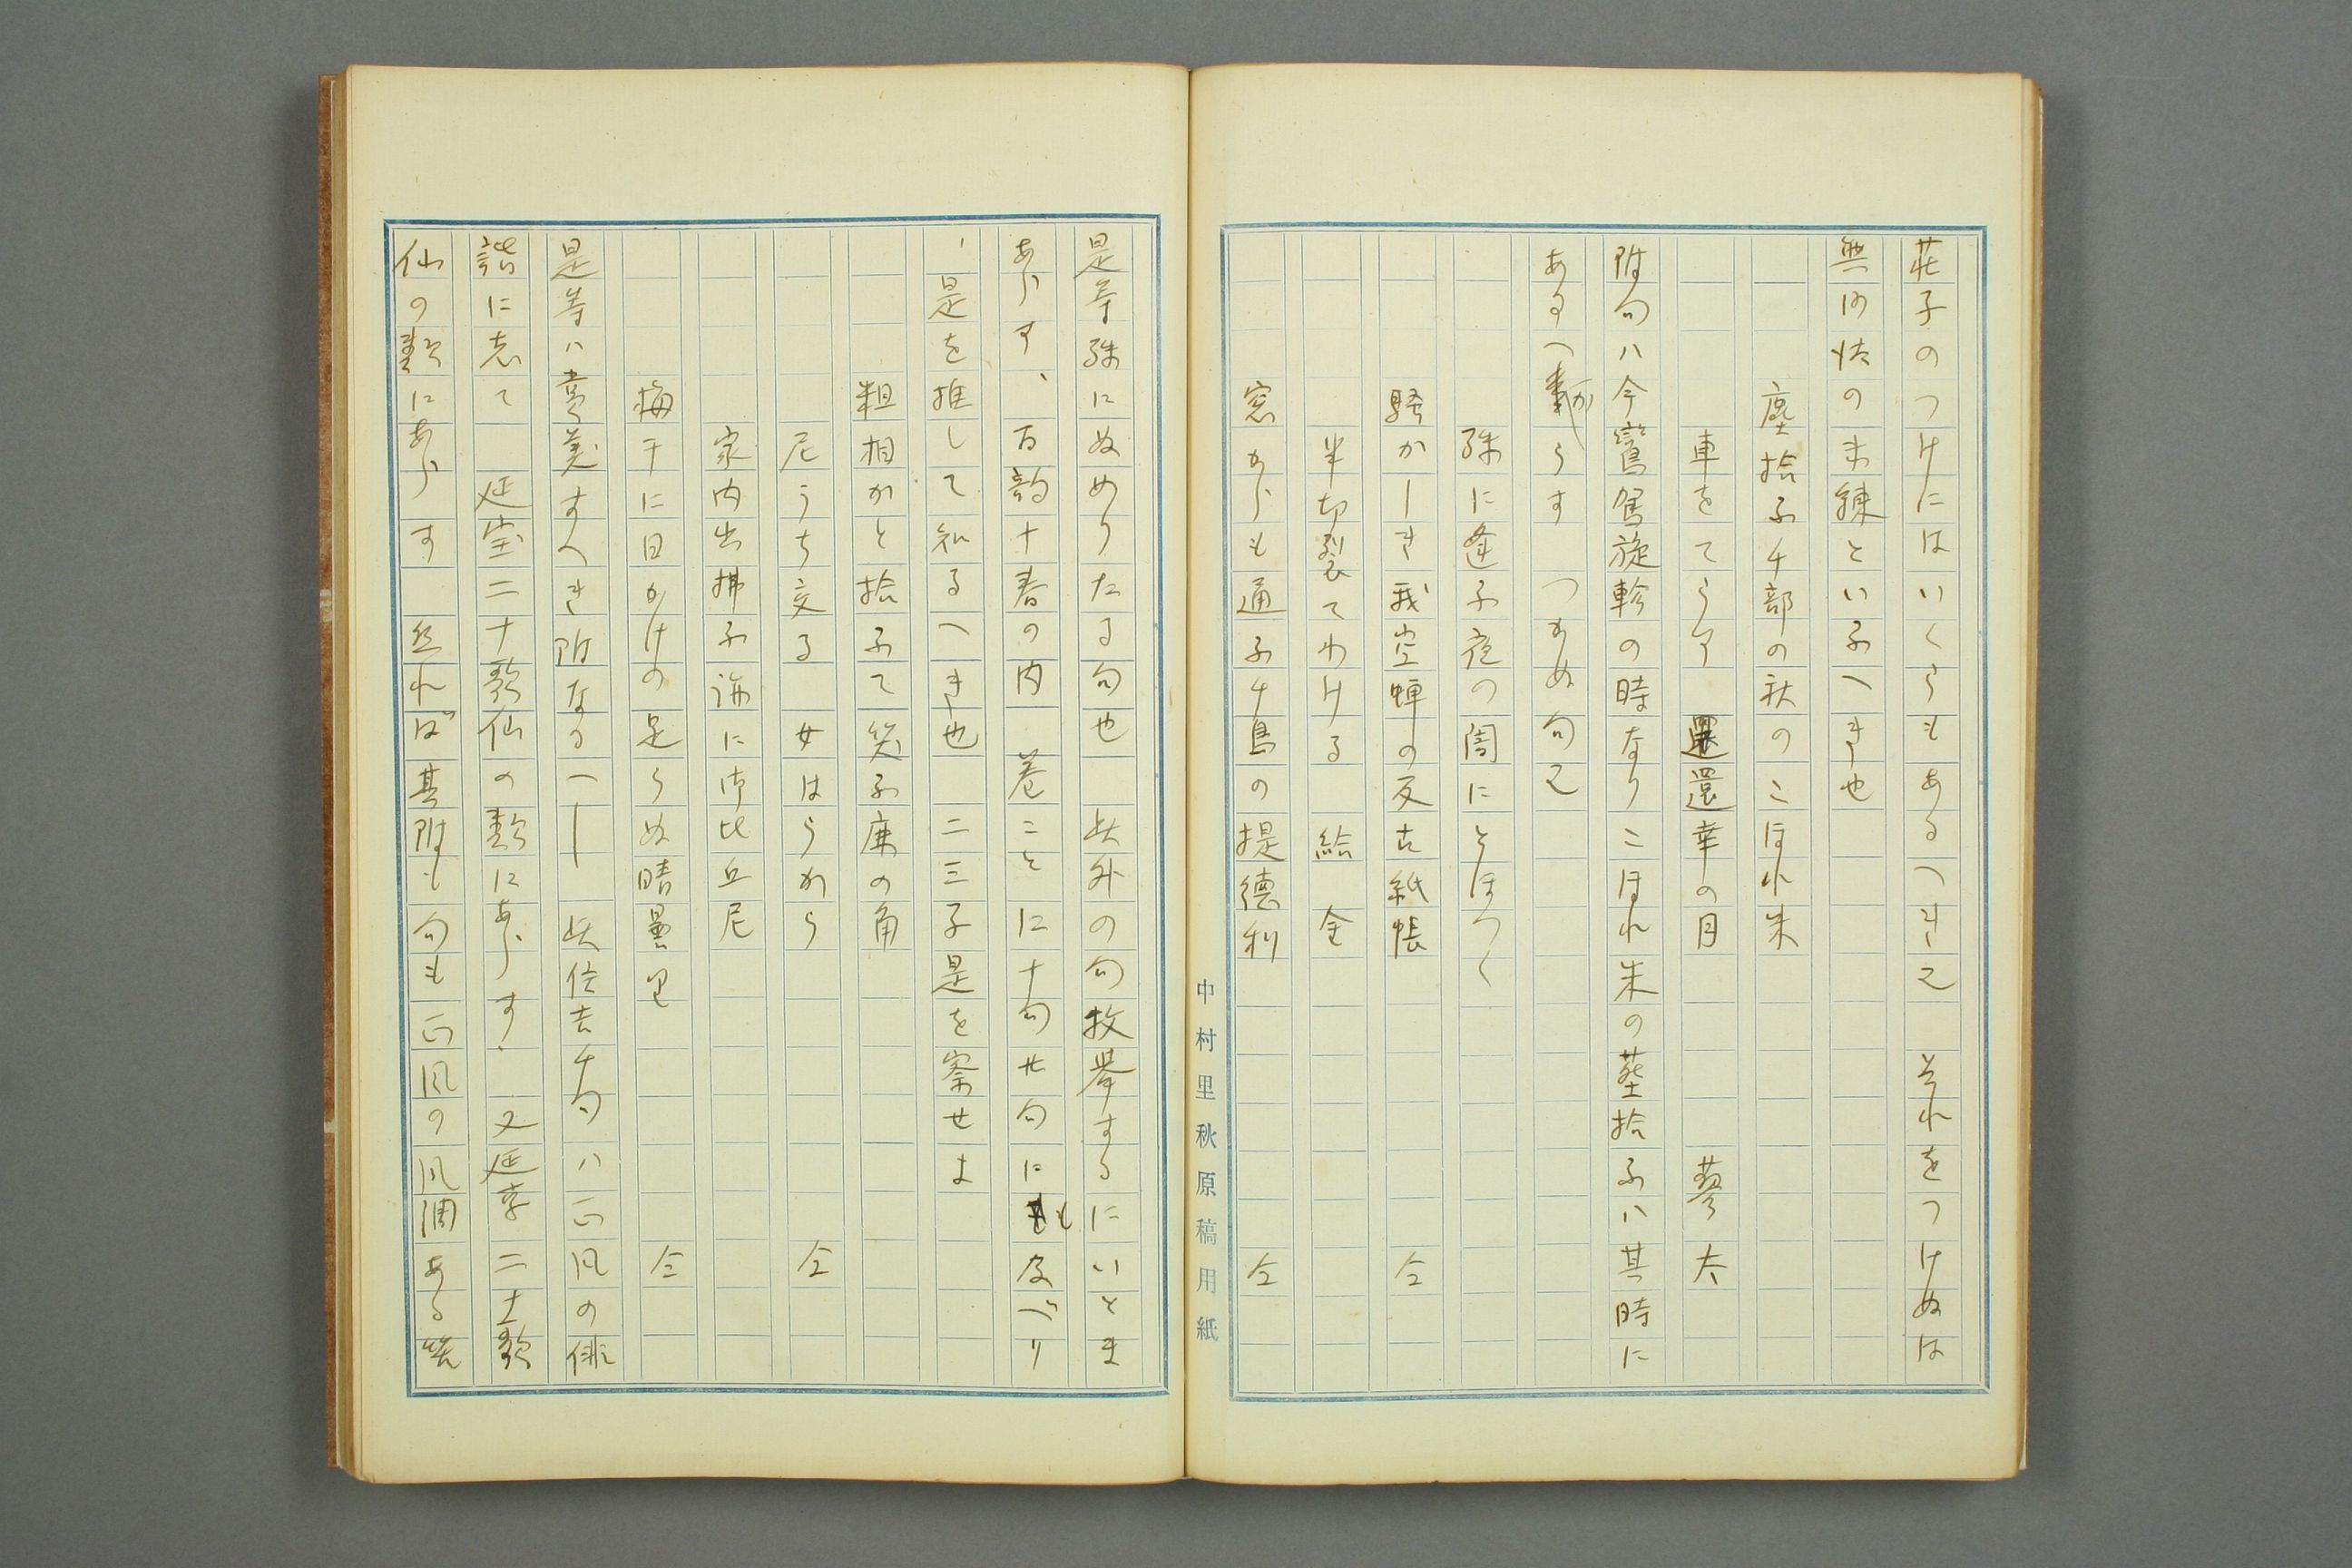 荘子のつけにはいくらもあるへき也　それをつけぬは
無功法の未練といふへき也
塵拾ふ千部の秋のこほれ米
車をてらす　還幸の月　蓼太
附句ハ今鸞駕旋軫の時なりこほれ米の塵拾ふハ其時に
あるへからす　つかぬ句也
殊に逢ふ夜の闇にとほつく
騒かしき我空蝉の反古紙帳　仝
半切裂てわける　給金
窓からも通ふ千鳥の提徳利　仝
中村里秋原稿用紙
是等殊にぬめりたる句也　此外の句枚挙するにいとま
あらす、百韵十巻の内　巻ことに十句廿句にも及べり
、是を推して知るへき也　二三子是を察せよ
粗相かと拾ふて笑ふ廉の角
尼うち交る　女はらから　仝
家内出拂ふ詣に御比丘尼
梅干に日かけの足らぬ晴曇り　仝
是等ハ賞美すへき附なるへし　此位去千句ハ正風の俳
諧に志て　延宝二十歌仙の類にあらす、又延享二十歌
仙の類にあらす　然れば其附も句も正風の風調ある